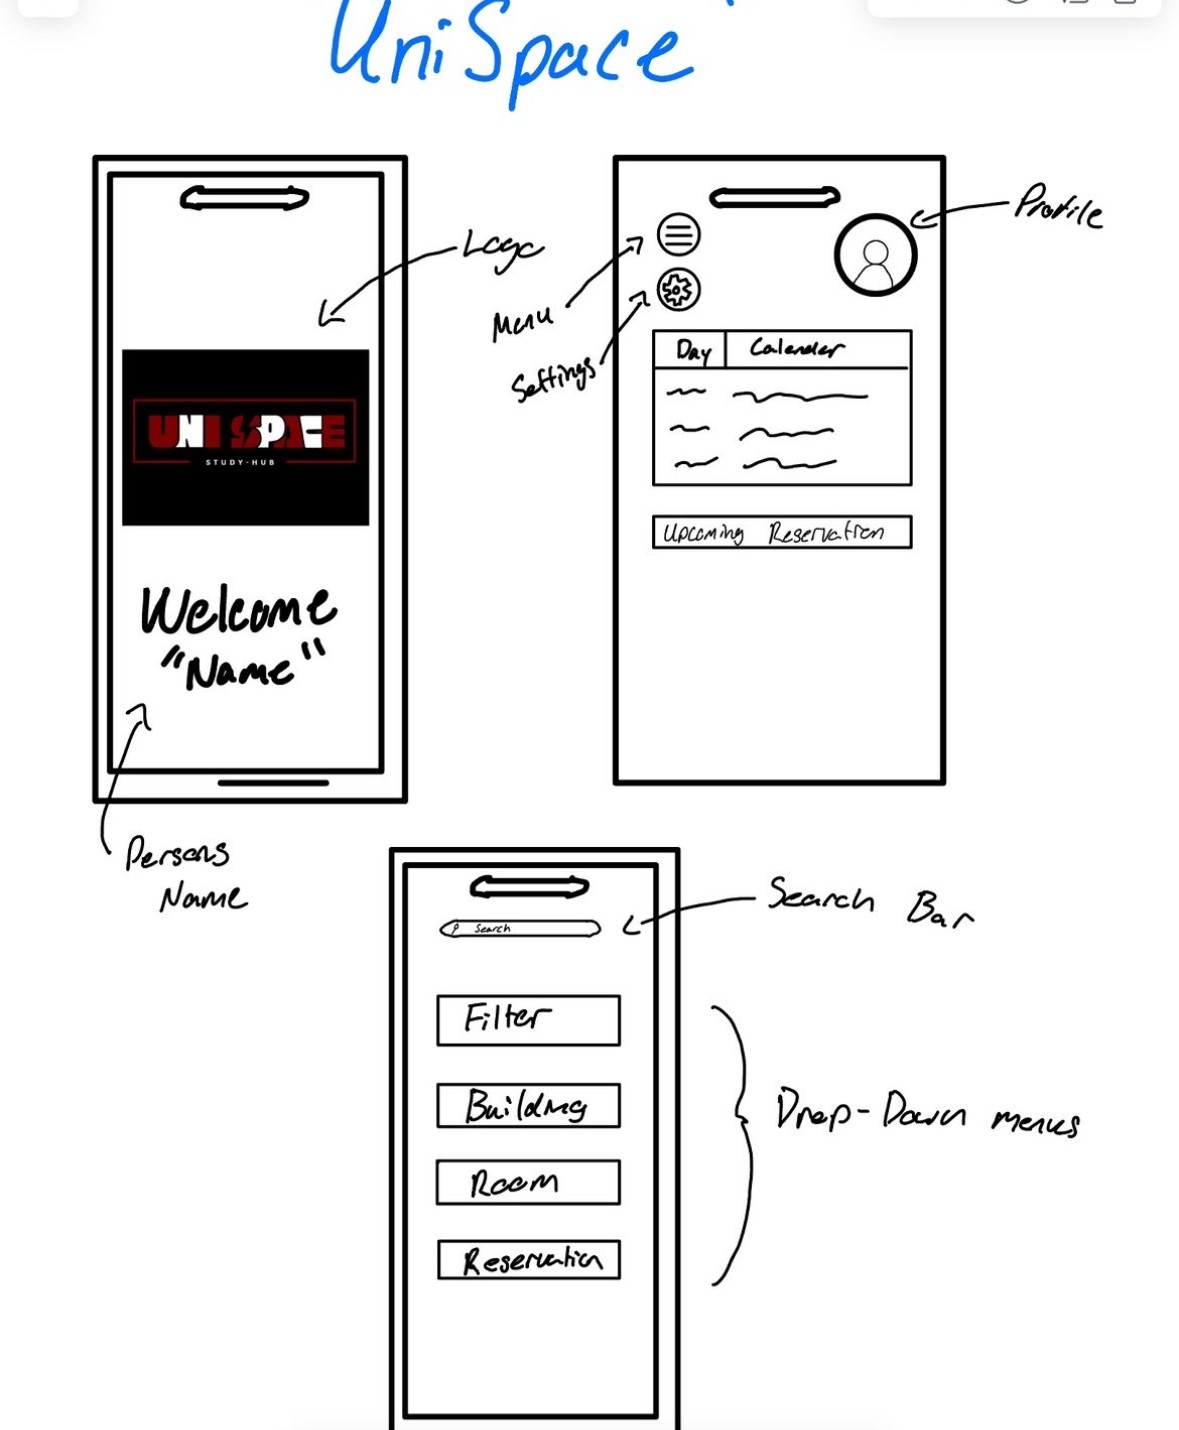 UniSpace
Logo
UNI SPACE
STUDY-HUB
Welcome
"Name"
Persons
Name
Profile
Menu
Settings
Day Calender
Upcoming Reservation
Search Bar
Search
Filter
Building
Room
Reservation
Drop-Down menus